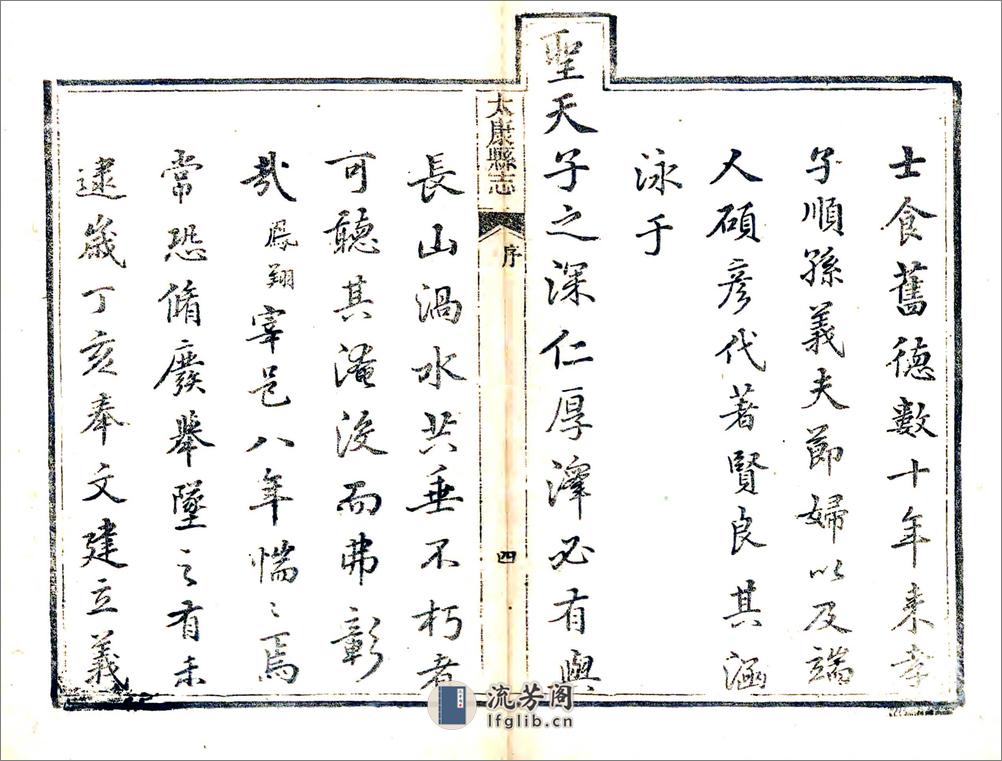 士食舊德數十年来孝
子順孫義夫節婦以及端
人碩彦代著賢良其涵
泳于
聖天子之深仁厚澤必有與
太康縣志
序
四
長山渦水共垂不朽者
可聽其淹没而弗彰
哉鳳翔宰邑八年惴〻焉
常恐脩廢舉墜之有未
逮歲丁亥奉文建立義
流芳阁
lfglib.cn